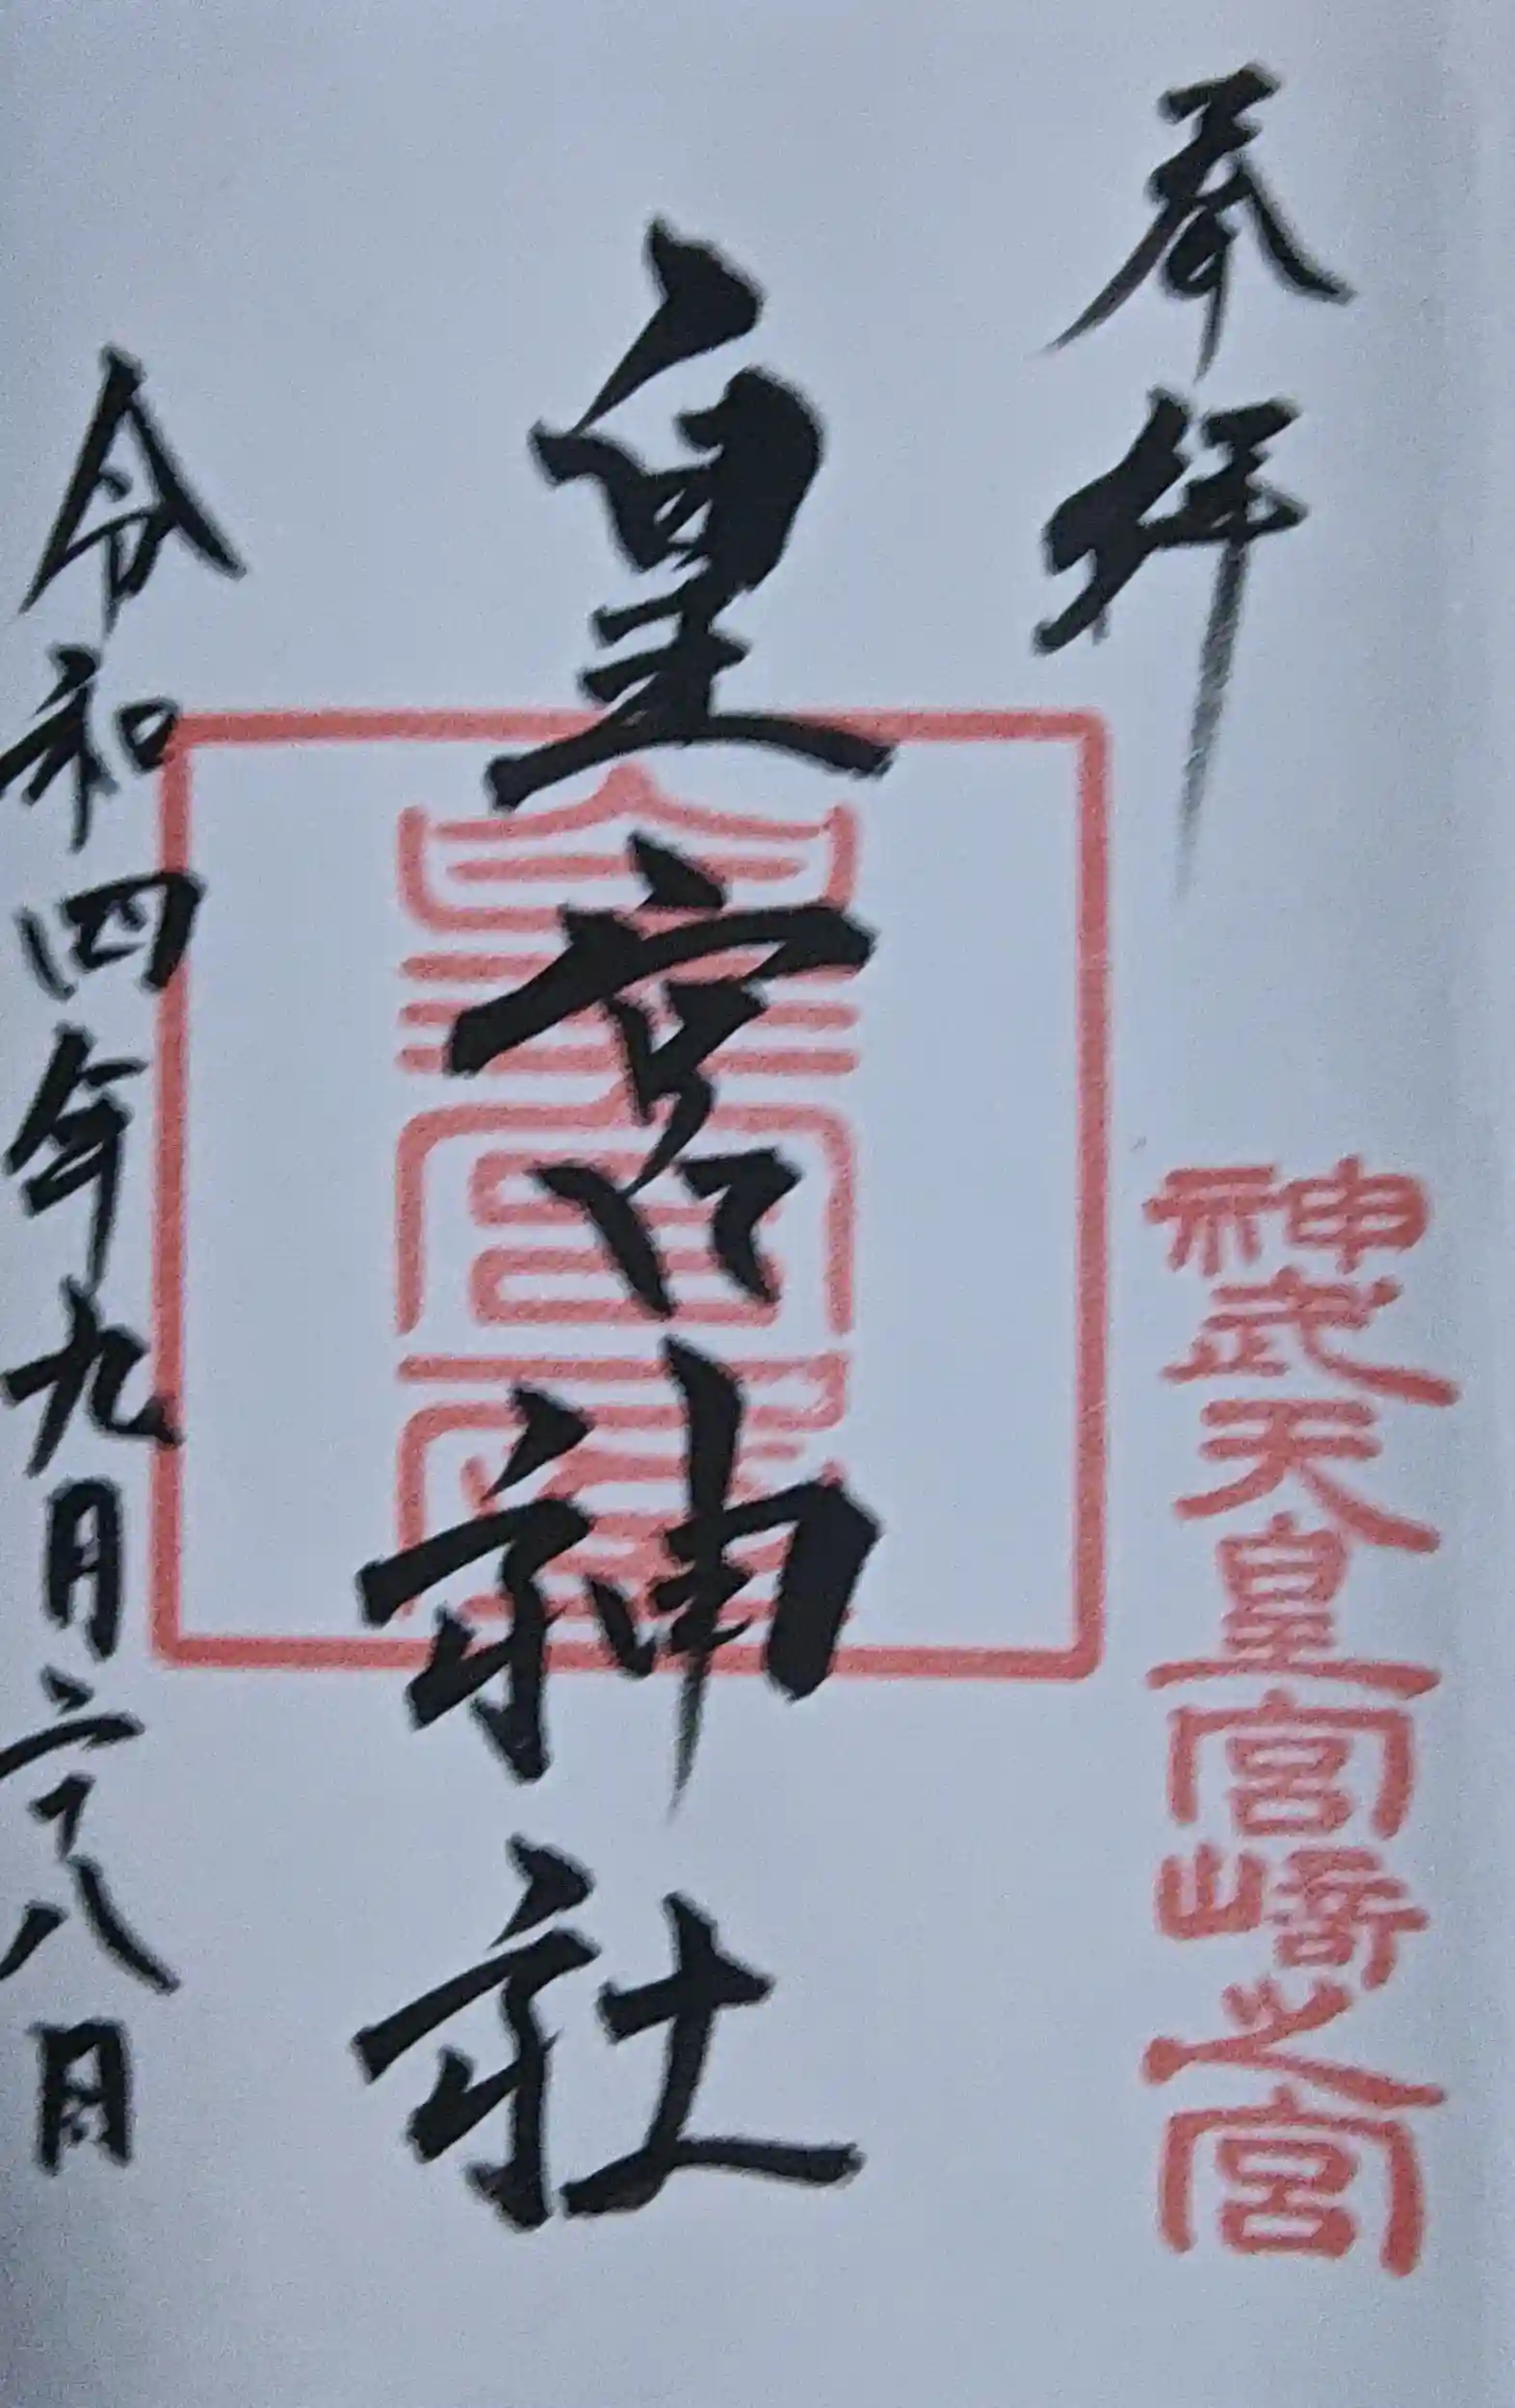 奉拝
神武天皇宮崎之宮
皇宮神社
皇宮屋
令和四年九月二十八日